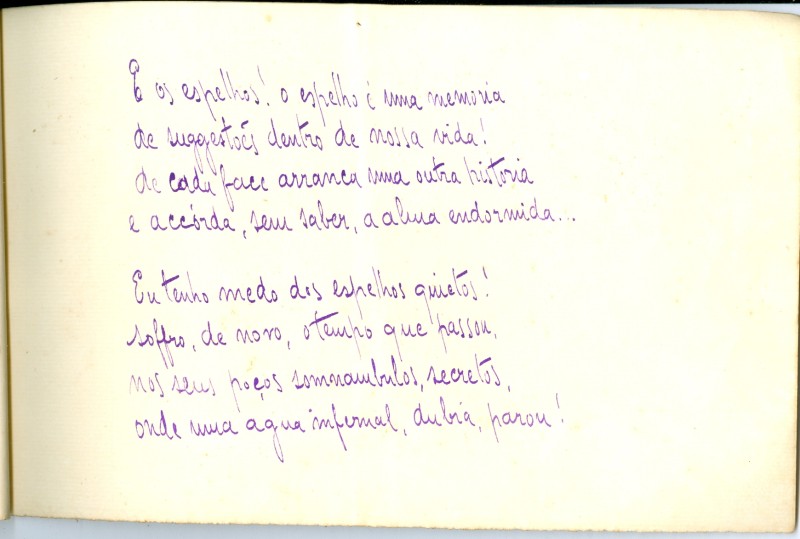 E os espelhos! o espelho é uma memoria
de suggestões dentro de nossa vida!
de cada face arranca uma outra historia
e accórda, sem saber, a alma endormida...
Eu tenho medo dos espelhos quietos!
soffro, de novo, o tempo que passou,
nos seus poços somnambulos, secretos,
onde uma agua infernal, dubia, parou!